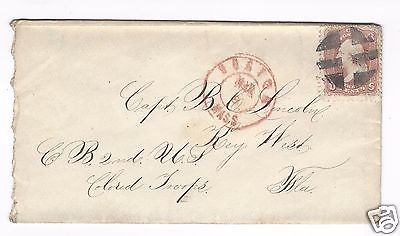 BOSTON
MASS.
Capt B. C. Lincoln
Key West
Co B 2nd. U S
Colored Troops. Fla.